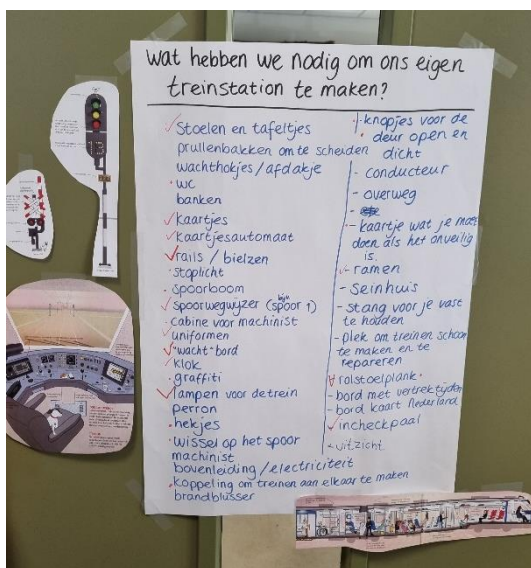 Wat hebben we nodig om ons eigen
treinstation te maken?
Stoelen en tafeltjes
prullenbakken om te scheiden
wachthokjes / afdakje
wc
banken
kaartjes
kaartjesautomaat
rails / bielzen
stoplicht
spoorboom
spoorwegwijzer (bijv spoor 1)
cabine voor machinist
uniformen
"wacht" bord
klok
graffiti
lampen voor de trein
perron
hekjes
wissel op het spoor
machinist
bovenleiding / electriciteit
koppeling om treinen aan elkaar te maken
brandblusser
- knopjes voor de
deur open en
dicht
- conducteur
- overweg
- kaartje wat je moet
doen als het onveilig
is.
- ramen
- Seinhuis
- stang voor je vast
te houden
- plek om treinen schoon
te maken en te
repareren
rolstoelplank
- bord met vertrektijden
- bord kaart Nederland
incheckpaal
- uitzicht